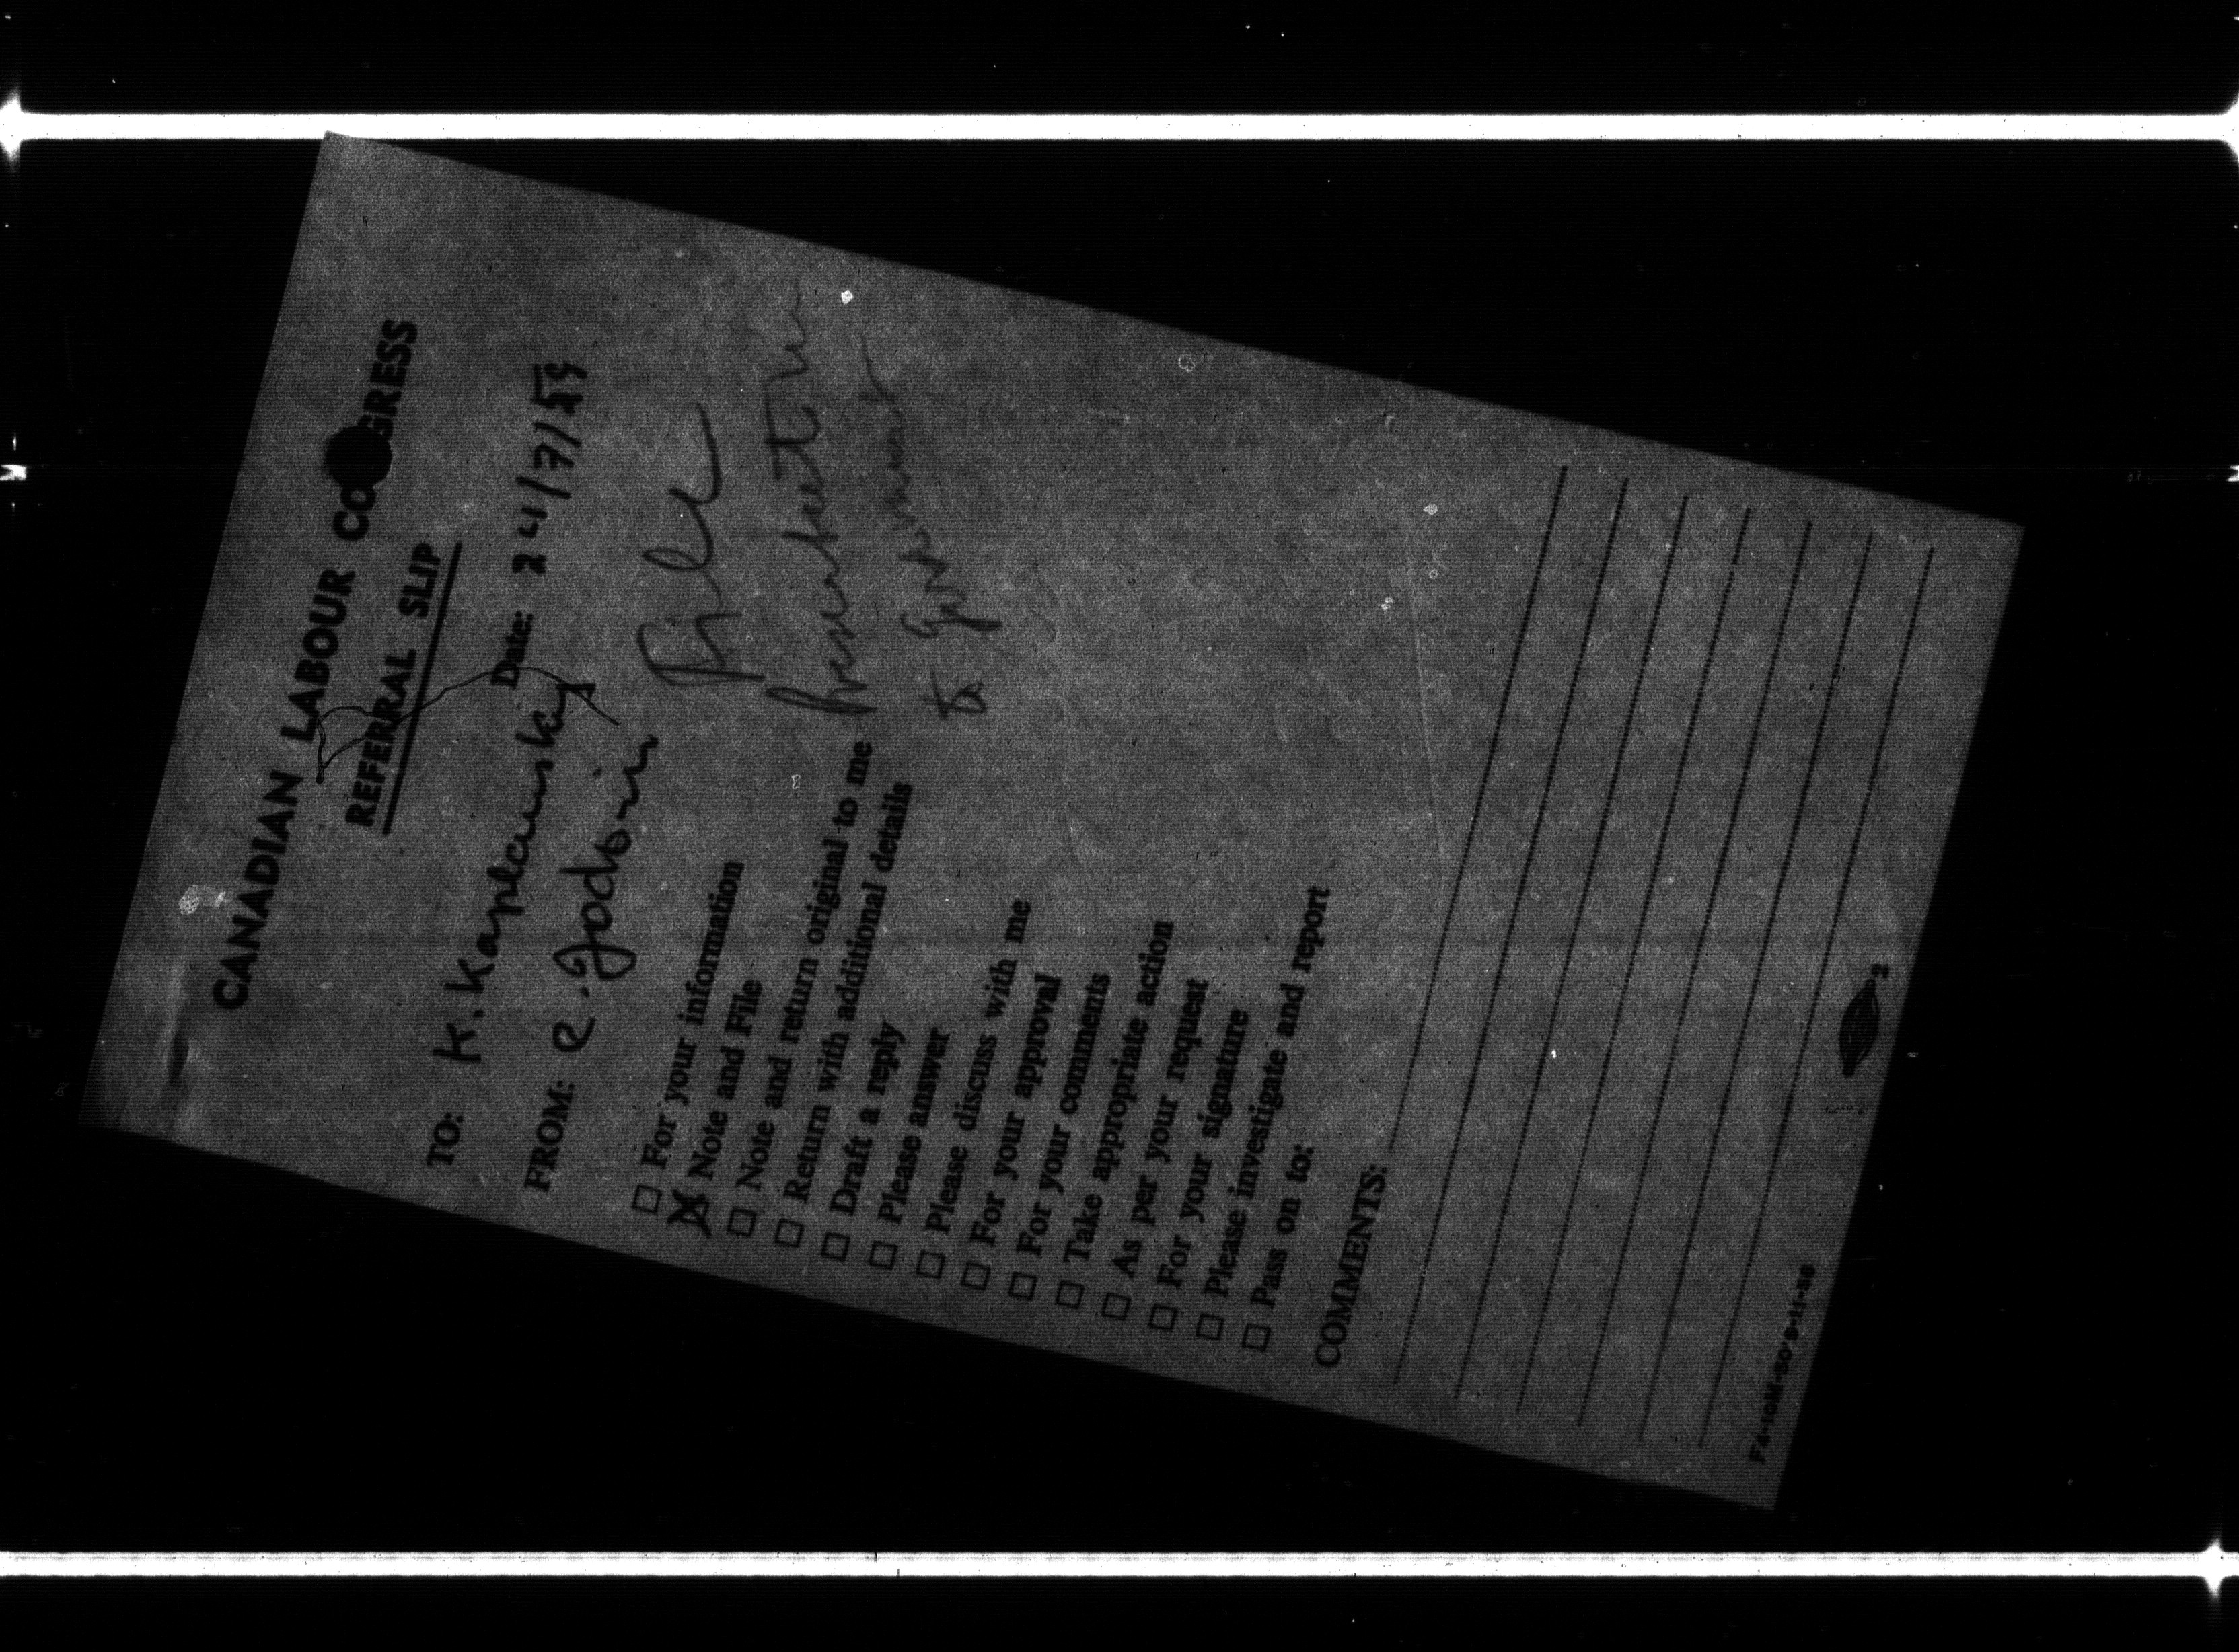 CANADIAN LABOUR CO GRESS
REFERRAL SLIP
Date: 24/7/59
TO: K. Kaplansky
FROM: C. Jodoin
File
Presentation
to Government
☐ For your information
☒ Note and File
☐ Note and return original to me
☐ Return with additional details
☐ Draft a reply
☐ Please answer
☐ Please discuss with me
☐ For your approval
☐ For your comments
☐ Take appropriate action
☐ As per your request
☐ For your signature
☐ Please investigate and report
☐ Pass on to:
COMMENTS:
F4-10M-50'S-11-58
2